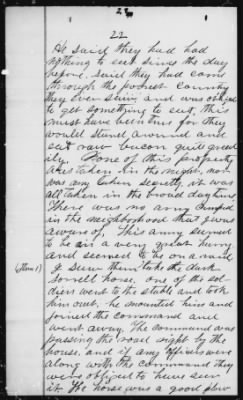 22
22
He said they had had
nothing to eat since the day
before, said they had come
through the poorest country
they ever saw, and was obliged
to get something to eat, this
must have been true for they
would stand around and
eat raw bacon quite greed-
ily. None of this property
was taken in the night, nor
was any taken secretly, it was
all taken in the broad daytime
There was no army camped
in the neighborhood that I was
aware of. This army seemed
to be in a very great hurry
and seemed to be on a raid
(Item 1) I saw them take the dark
sorrell horse, one of the sol-
diers went to the stable and took
him out, he mounted him and
joined the command and
went away. The command was
passing the road right by the
house, and if any officers were
along with the command they
were obliged to have seen
it. The horse was a good plow